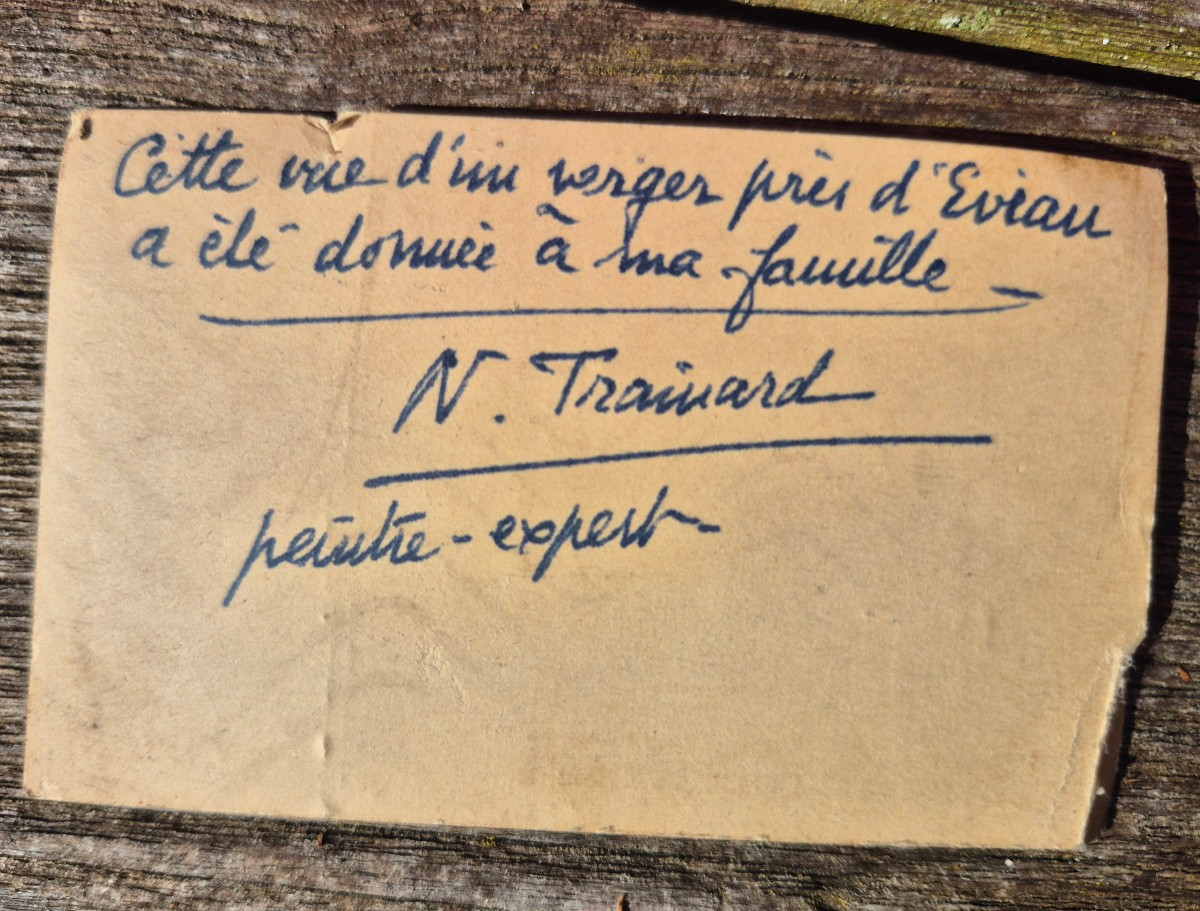 Cette vue d'un verger près d'Evian
a été donnée à ma famille -
N. Trainard
peintre-expert-